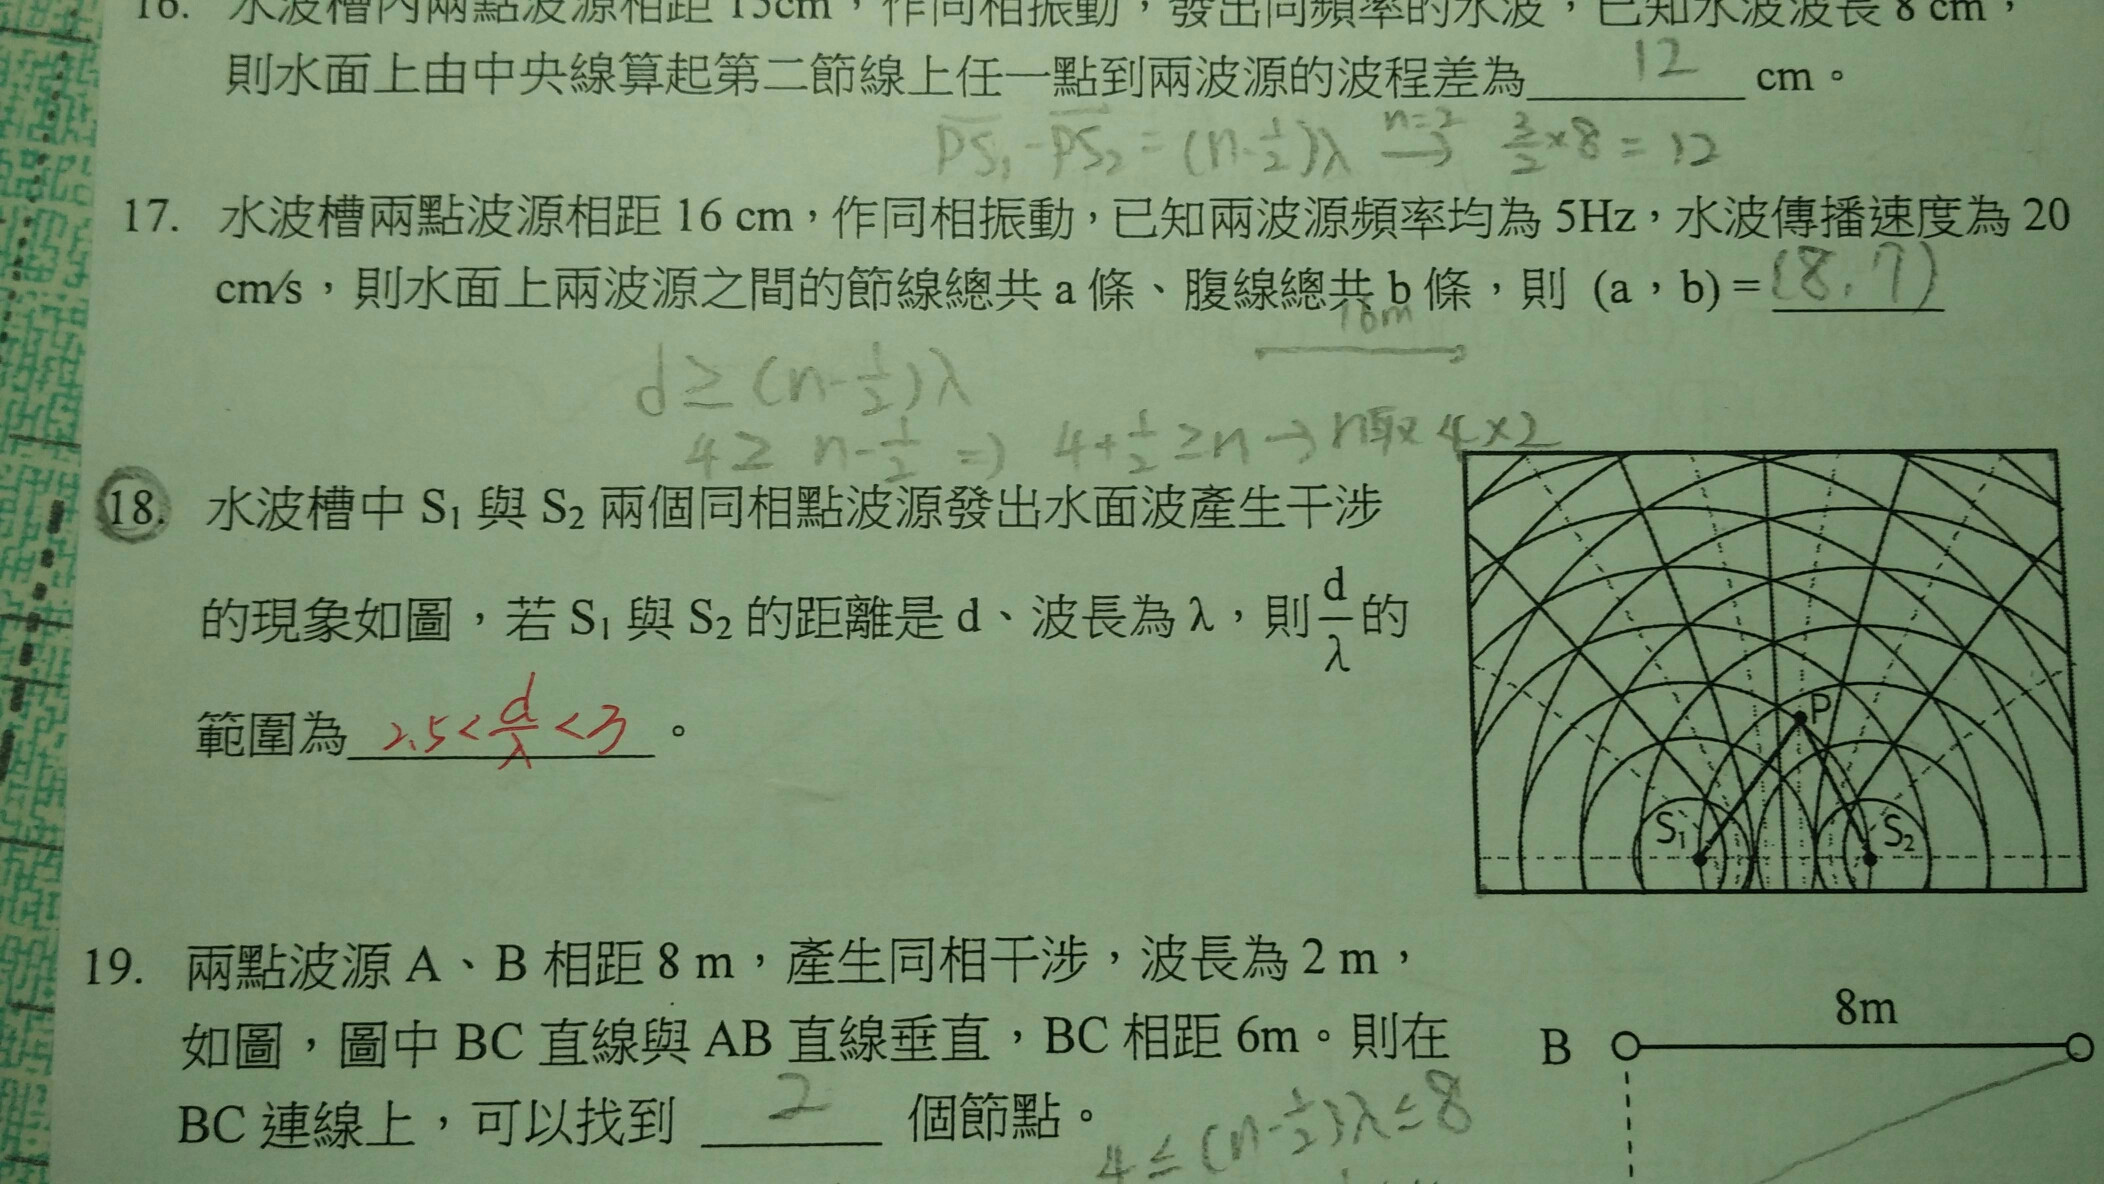 16. 水波槽內兩點波源相距 15cm，作同相振動，發出同頻率的水波，已知水波波長 8 cm，
則水面上由中央線算起第二節線上任一點到兩波源的波程差為 12 cm。
PS₁ - PS₂ = (n-1/2)λ n=2→ 3/2×8 = 12
17. 水波槽兩點波源相距 16 cm，作同相振動，已知兩波源頻率均為 5Hz，水波傳播速度為 20
cm/s，則水面上兩波源之間的節線總共 a 條、腹線總共 b 條，則 (a，b) = (8, 7)
16m
d ≥ (n-1/2)λ
4 ≥ n-1/2 => 4+1/2 ≥ n → n取 4×2
18. 水波槽中 S₁ 與 S₂ 兩個同相點波源發出水面波產生干涉
的現象如圖，若 S₁ 與 S₂ 的距離是 d、波長為 λ，則 d/λ 的
範圍為 2.5 < d/λ < 3。
P
S₁ S₂
19. 兩點波源 A、B 相距 8 m，產生同相干涉，波長為 2 m，
如圖，圖中 BC 直線與 AB 直線垂直，BC 相距 6m。則在
BC 連線上，可以找到 2 個節點。
8m
B
4 ≤ (n-1/2)λ ≤ 8